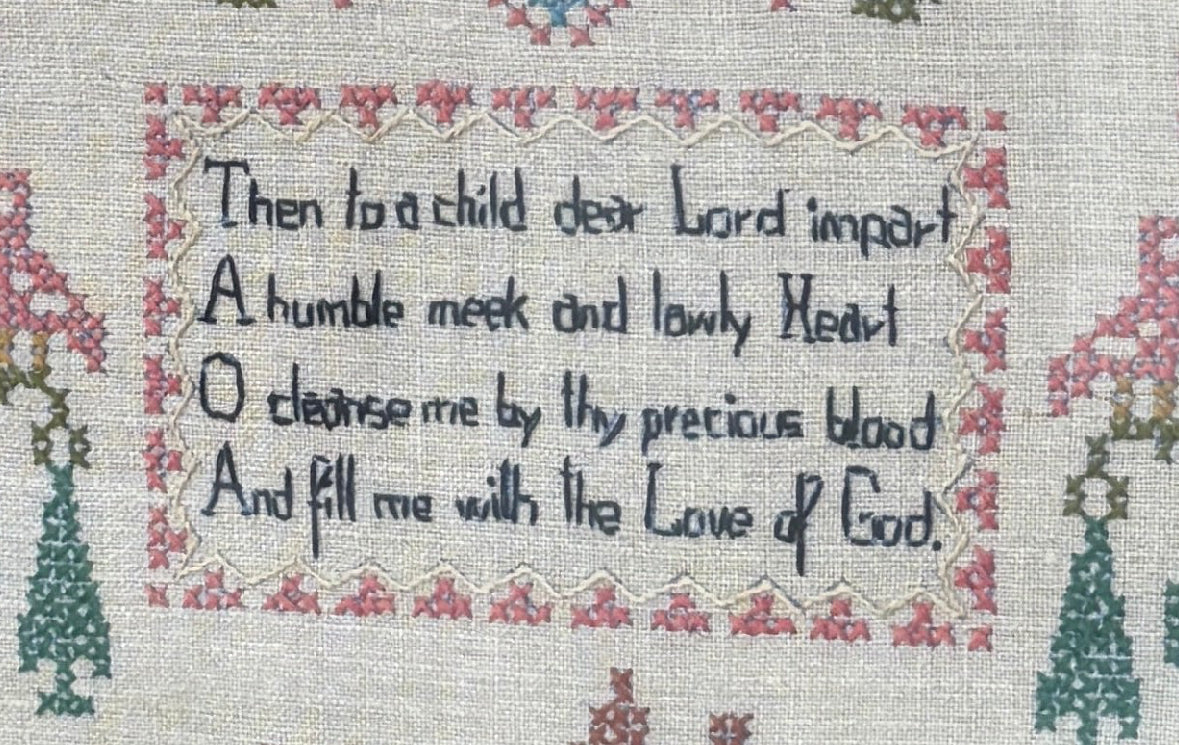 Then to a child dear Lord impart
A humble meek and lowly Heart
O cleanse me by thy precious blood
And fill me with the Love of God.